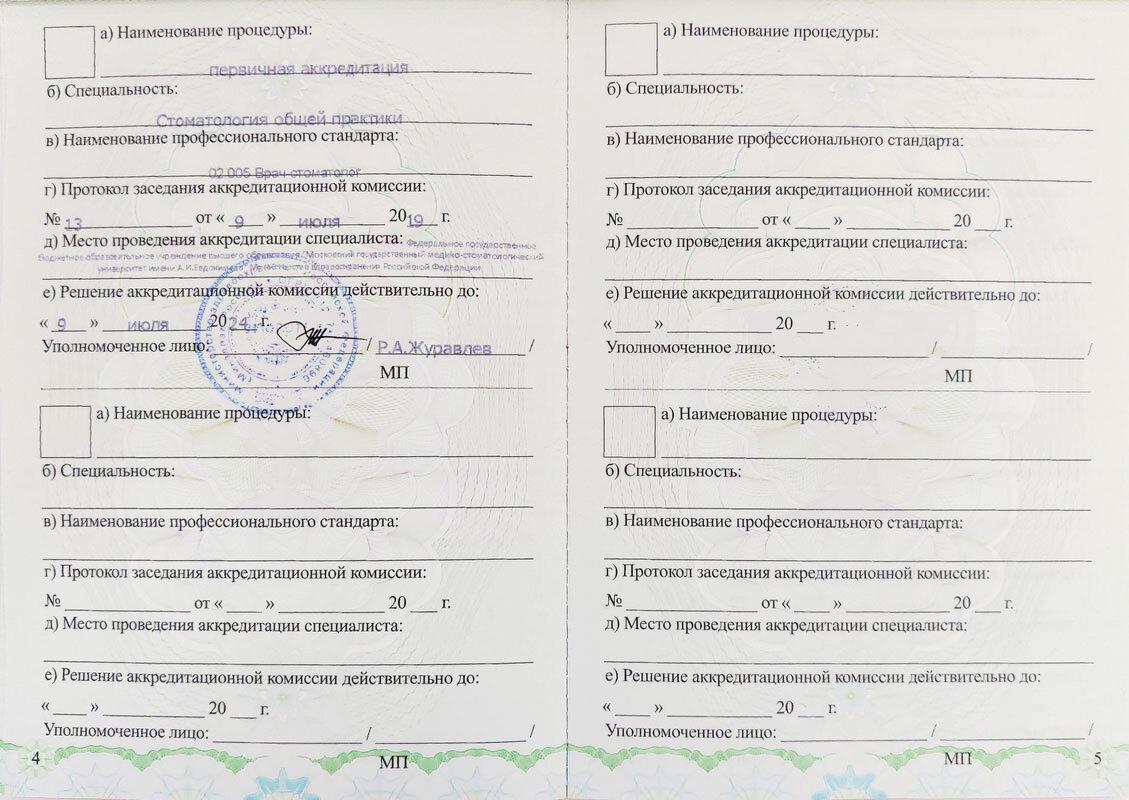 а) Наименование процедуры:
первичная аккредитация
б) Специальность:
Стоматология общей практики
в) Наименование профессионального стандарта:
02.005 Врач-стоматолог
г) Протокол заседания аккредитационной комиссии:
№ 13 от « 9 » июля 2019 г.
д) Место проведения аккредитации специалиста: Федеральное государственное
бюджетное образовательное учреждение высшего "Московский государственный медико-стоматологический
университет имени А.И.Евдокимова" Министерства здравоохранения Российской Федерации
е) Решение аккредитационной комиссии действительно до:
« 9 » июля 2024 г.
Уполномоченное лицо: / Р.А.Журавлев /
МП
а) Наименование процедуры:
б) Специальность:
в) Наименование профессионального стандарта:
г) Протокол заседания аккредитационной комиссии:
№ от « » 20 г.
д) Место проведения аккредитации специалиста:
е) Решение аккредитационной комиссии действительно до:
« » 20 г.
Уполномоченное лицо: / /
4 МП
а) Наименование процедуры:
б) Специальность:
в) Наименование профессионального стандарта:
г) Протокол заседания аккредитационной комиссии:
№ от « » 20 г.
д) Место проведения аккредитации специалиста:
е) Решение аккредитационной комиссии действительно до:
« » 20 г.
Уполномоченное лицо: / /
МП
а) Наименование процедуры:
б) Специальность:
в) Наименование профессионального стандарта:
г) Протокол заседания аккредитационной комиссии:
№ от « » 20 г.
д) Место проведения аккредитации специалиста:
е) Решение аккредитационной комиссии действительно до:
« » 20 г.
Уполномоченное лицо: / /
МП 5